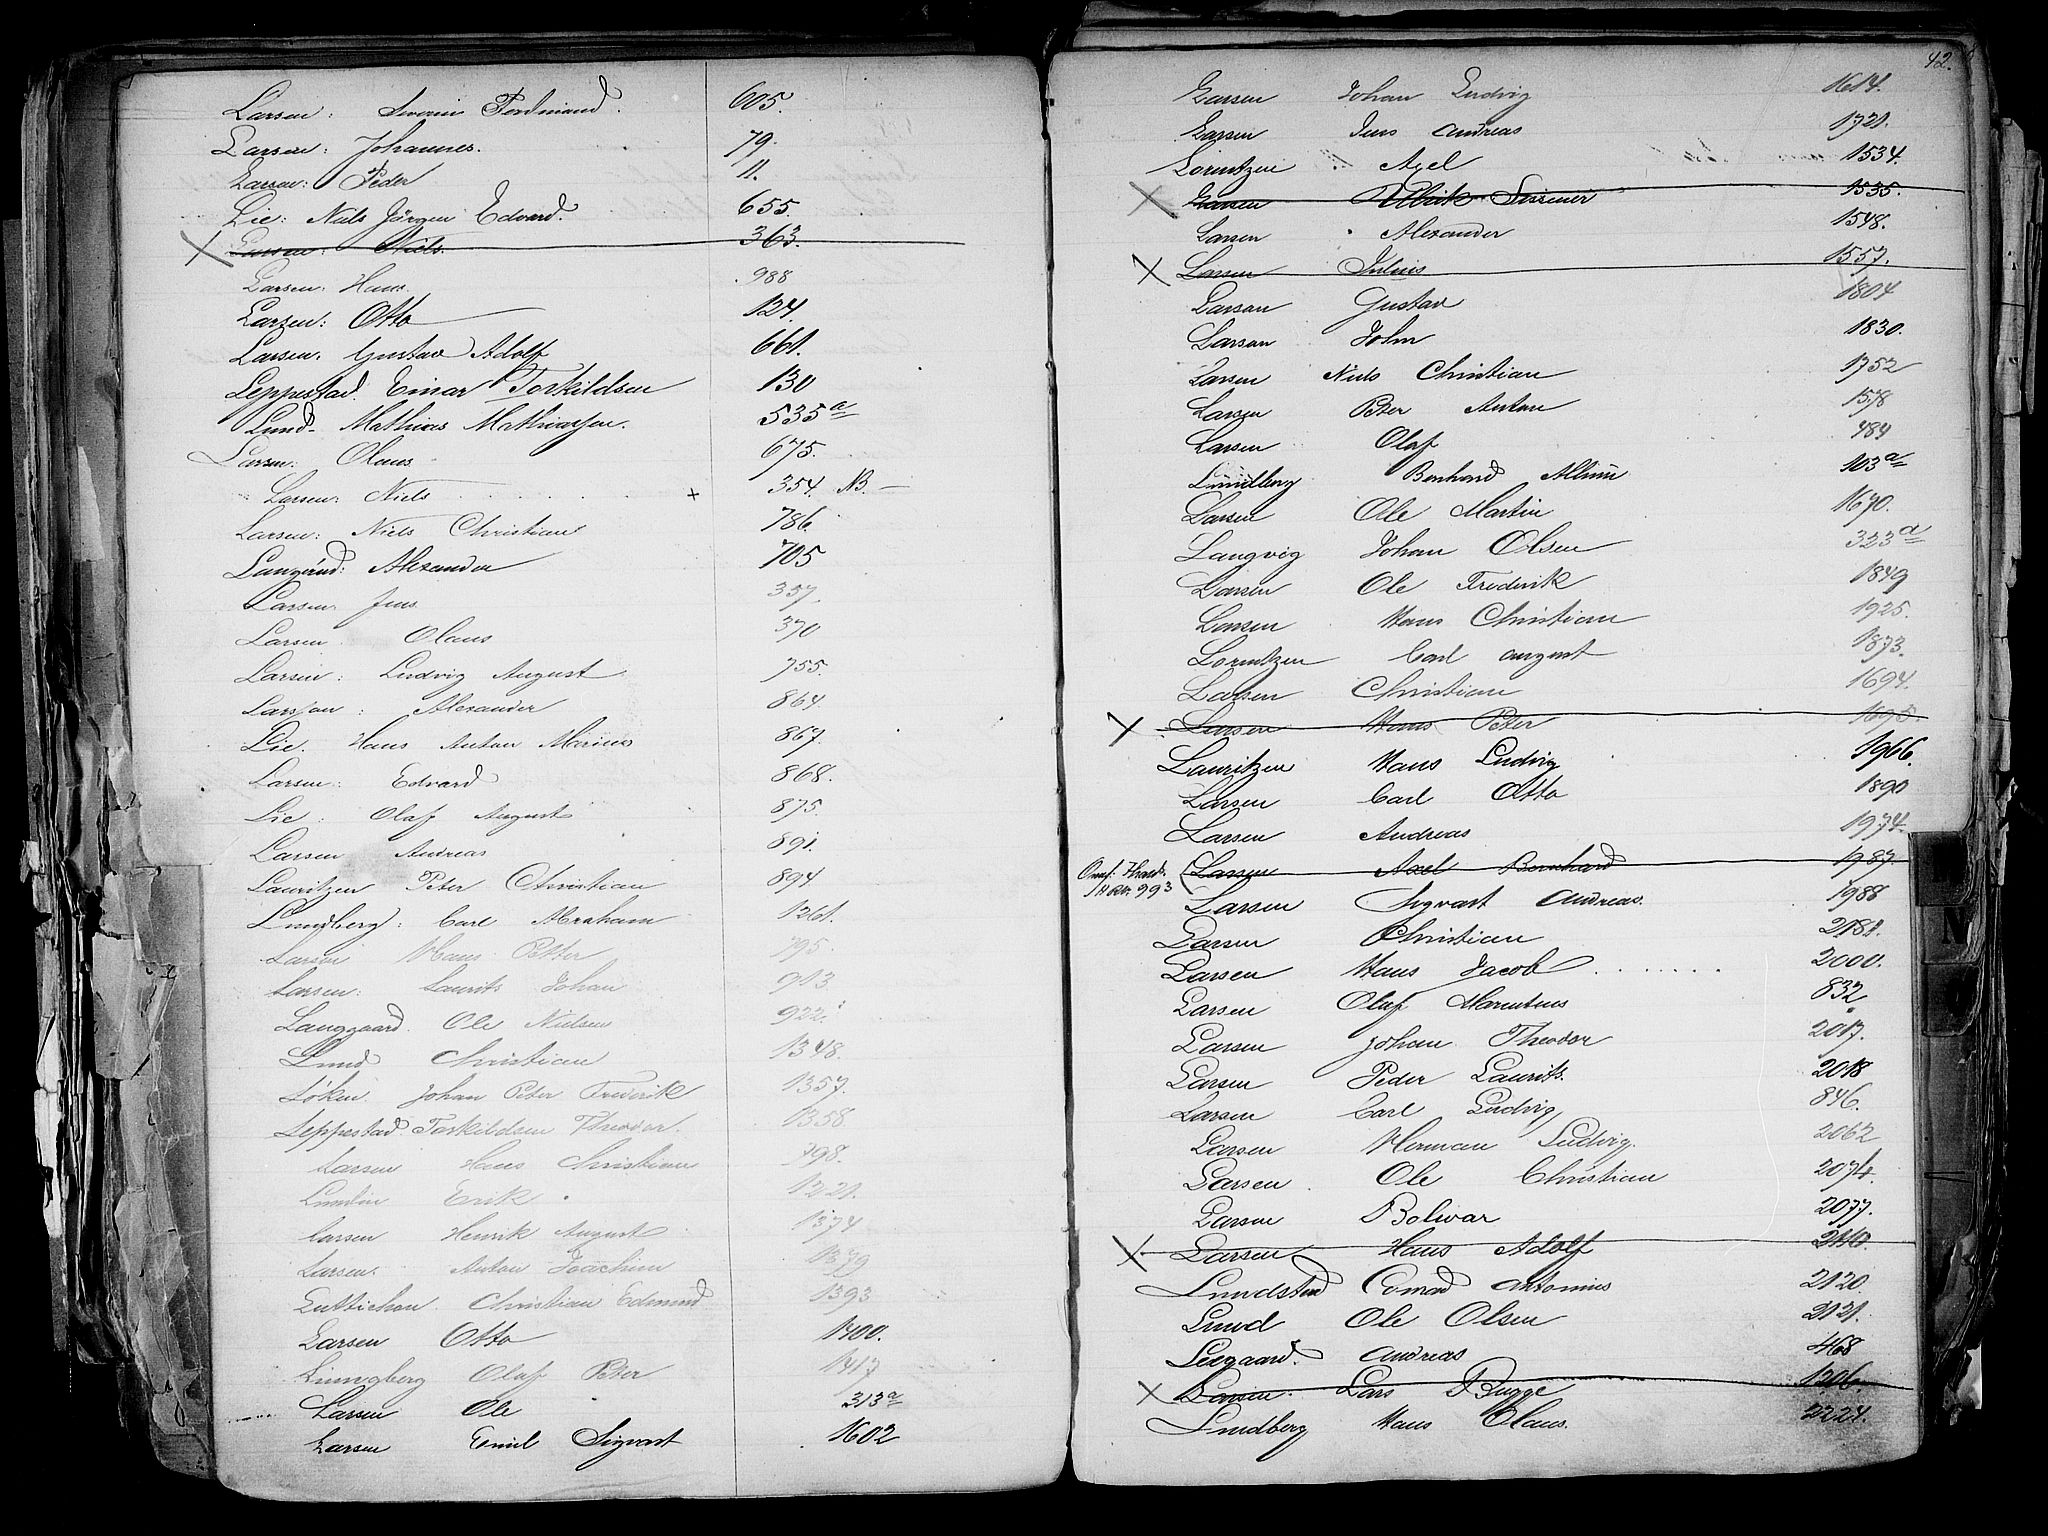 Larsen: Severin Ferdinand. 605.
Larsen: Johannes. 79.
Larsen: Peder 11.
Lie: Niels Jörgen Edvard. 655.
X Larsen: Niels. 363.
Larsen: Hans. 988
Larsen: Otto 124.
Larsen: Gustav Adolf 661.
Leppestad. Einar Torkildsen 130
Lund- Mathias Mathiassen. 535 a
Larsen: Olaus 675.
Larsen: Niels + 354. NB.—
Larsen: Niels Christian 786.
Langerud: Alexander 705
Larsen Jens 357.
Larsen Olaus 370
Larsen: Ludvig August 755.
Larsson: Alexander 864.
Lie. Hans Anton Marius 867.
Larsen: Edvard 868.
Lie: Olaf August 875.
Larsen Andreas 891.
Lauritzen Peter Christian 894.
Lundberg: Carl Abraham 1261.
Larsen Hans Petter 795.
Larsen: Laurits Johan 913
Langgaard. Ole Nielsen 922.
Lund Christian 1348.
Löken. Johan Peter Frederik 1357.
Leppestad. Torkildsen Theodor. 1358.
Larsen Hans Christian 798.
Lundin Erik 1221.
Larsen Henrik August 1374
Larsen. Anton Joachim 1379
Luttichau. Christian Edmund 1393
Larsen Otto 1400.
Ljungberg Olaf Peter 1417
Larsen Ole 313 a
Larsen Emil Sigvart 1602
42.
Larsen Johan Ludvig 1614.
Larsen Jens Andreas 1721.
Lorentzen Axel 1534.
X Larsen Ulrik Sissener 1535.
Larsen Alexander 1548.
X Larsen Julius 1557.
Larsen Gustav 1804
Larsen John 1830.
Larsen Niels Christian 1752
Larsen Peter Anton 1578
Larsen Olaf 484
Lundberg Bernhard Albin 103 a
Larsen Ole Martin 1670.
Langvig Johan Olsen 323 a
Larsen Ole Frederik 1849
Larsen Hans Christian 1925.
Lorentzen Carl August 1873.
Larsen Christian 1694.
X Larsen Hans Peter 1695.
Lauritzen Hans Ludvig 1966.
Larsen Carl Otto 1890
Larsen Andreas 1974.
(Larsen Axel Bernhard 1987
993
Larsen Sigvart Andreas. 1988
Larsen Christian 2181.
Larsen Hans Jacob 2000.
Larsen Olaf Marentius 832
Larsen Johan Theodor 2017.
Larsen Peder Laurits. 2018
Larsen Carl Ludvig 846.
Larsen Herman Ludvig. 2062
Larsen. Ole Christian 2074.
Larsen Bolivar 2077.
X Larsen Hans Adolf 2110.
Lundsted Conrad Antonius 2120
Lund Ole Olsen 2121.
Leegaard. Andreas 468
X Larsen. Lars Bugge 1206.
Lundberg Hans Olaus. 2224.